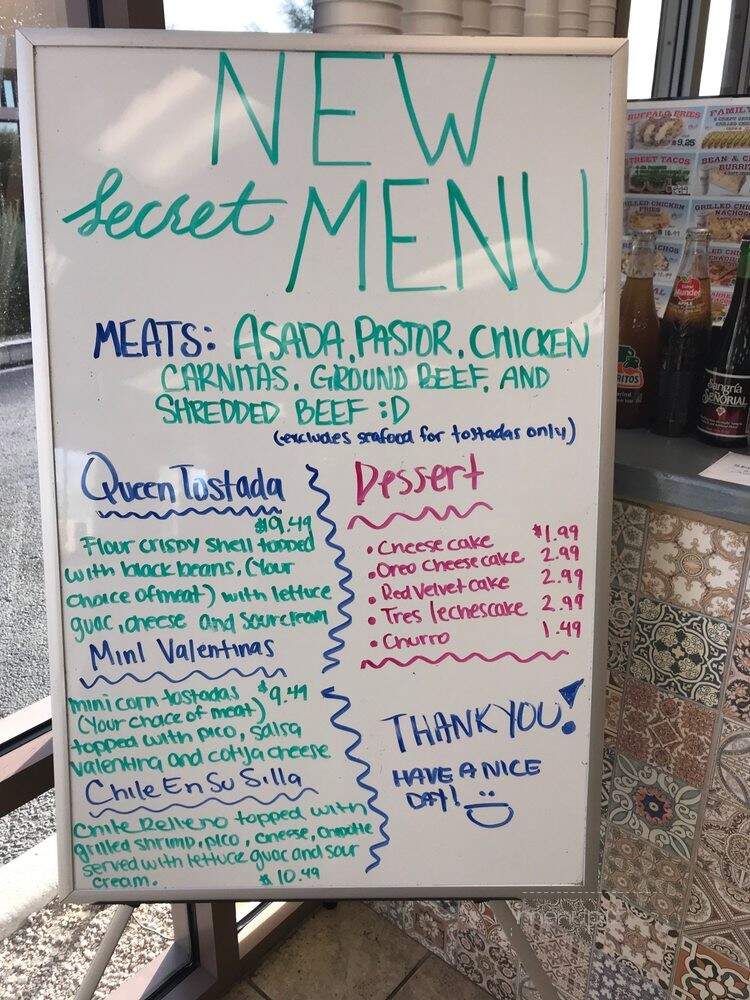 NEW
Secret MENU
MEATS: ASADA, PASTOR, CHICKEN
CARNITAS, GROUND BEEF, AND
SHREDDED BEEF :D
(excludes seafood for tostadas only)
Queen Tostada
$9.49
Flour crispy shell topped
with black beans, (Your
choice of meat) with lettuce
guac, cheese and sourcream
Mini Valentinas
mini corn tostadas $9.49
(Your choice of meat)
topped with pico, salsa
valentina and cotija cheese
Chile En Su Silla
Chile Relleno topped with
grilled shrimp, pico, cheese, chipotle
served with lettuce guac and sour
cream. $10.49
Dessert
• Cheese cake $1.99
• Oreo Cheese cake 2.99
• Red Velvet cake 2.99
• Tres leches cake 2.99
• Churro 1.49
THANK YOU!
HAVE A NICE
DAY!
BUFFALO FRIES
$9.25
FAMILY
STREET TACOS
BEAN & C
BURRIT
GRILLED CHICKEN
FRIES
GRILLED CHI
NACHO
Mundet
Sangría
SEÑORIAL
RITOS